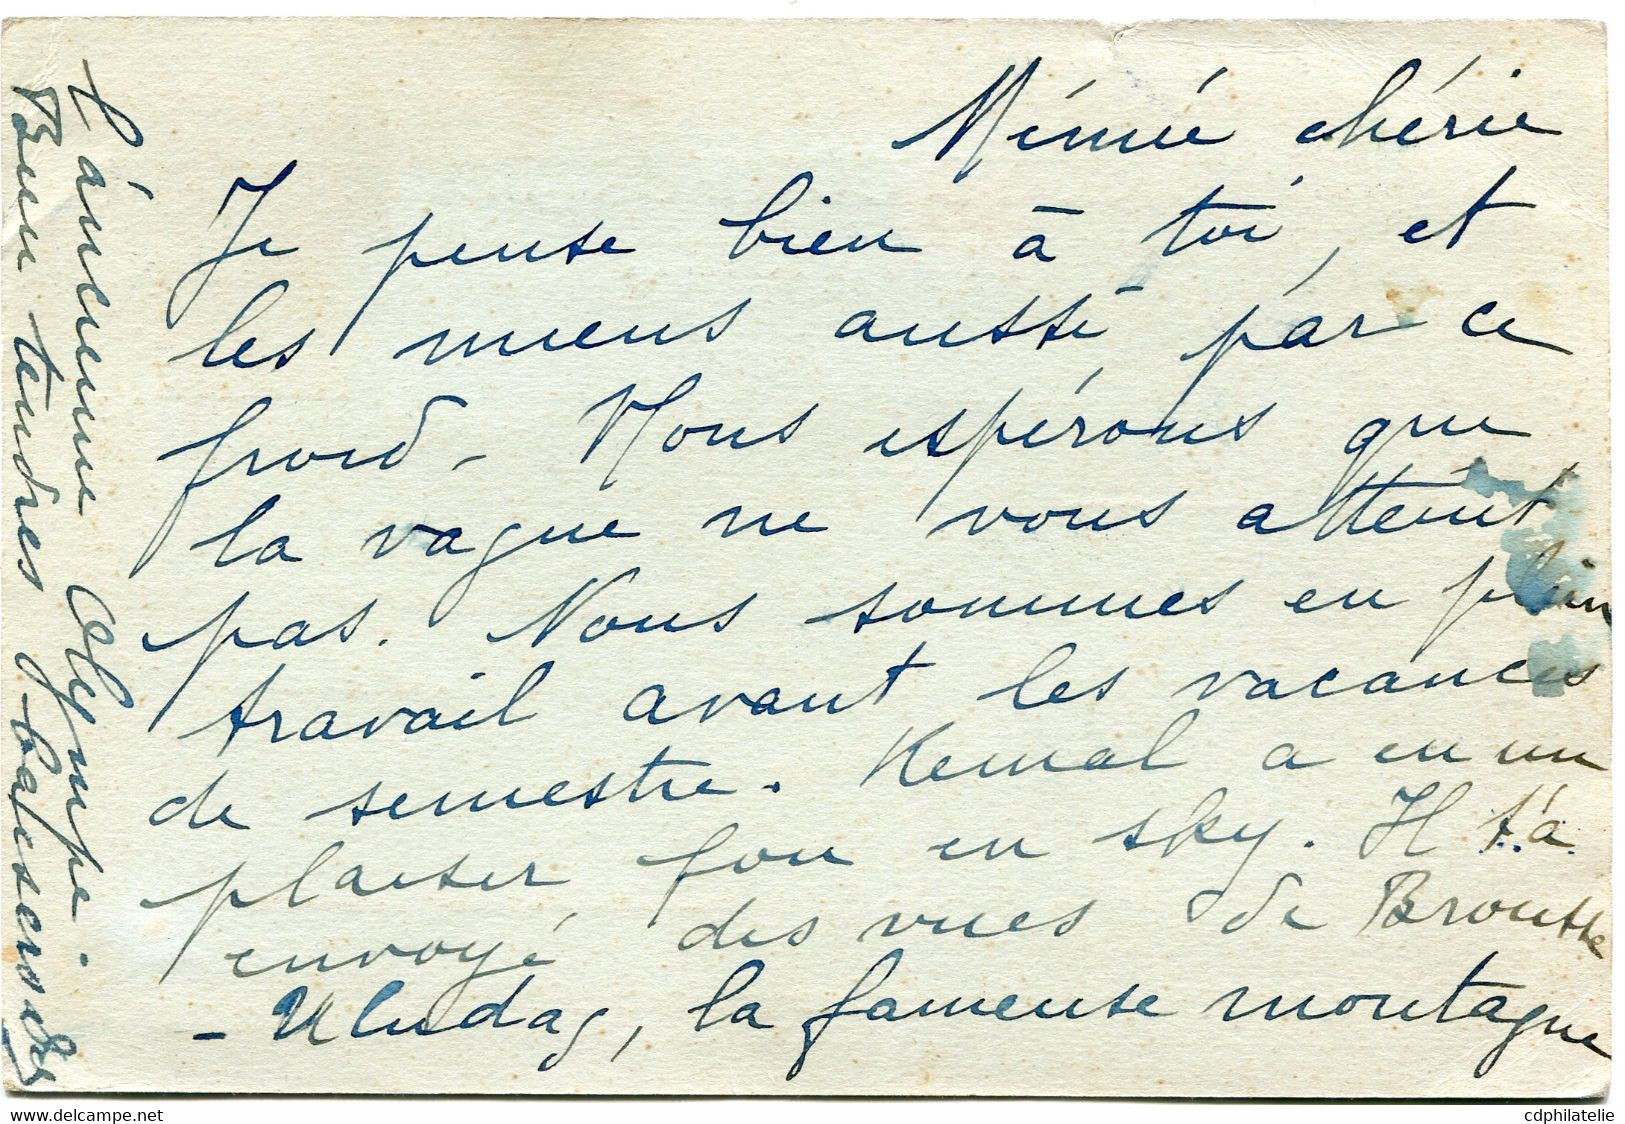 Mémée chérie
Je pense bien à toi, et
les miens aussi par ce
froid - Nous espérons que
la vague ne vous atteint
pas. Nous sommes en plein
travail avant les vacances
de semestre. Kemal a eu un
plaisir fou en sky. Il t'a
envoyé des vues de Brousse
- Uludag, la fameuse montagne
l'ancienne Olympe.
Bien tendres baisers
www.delcampe.net
cdphilatelie